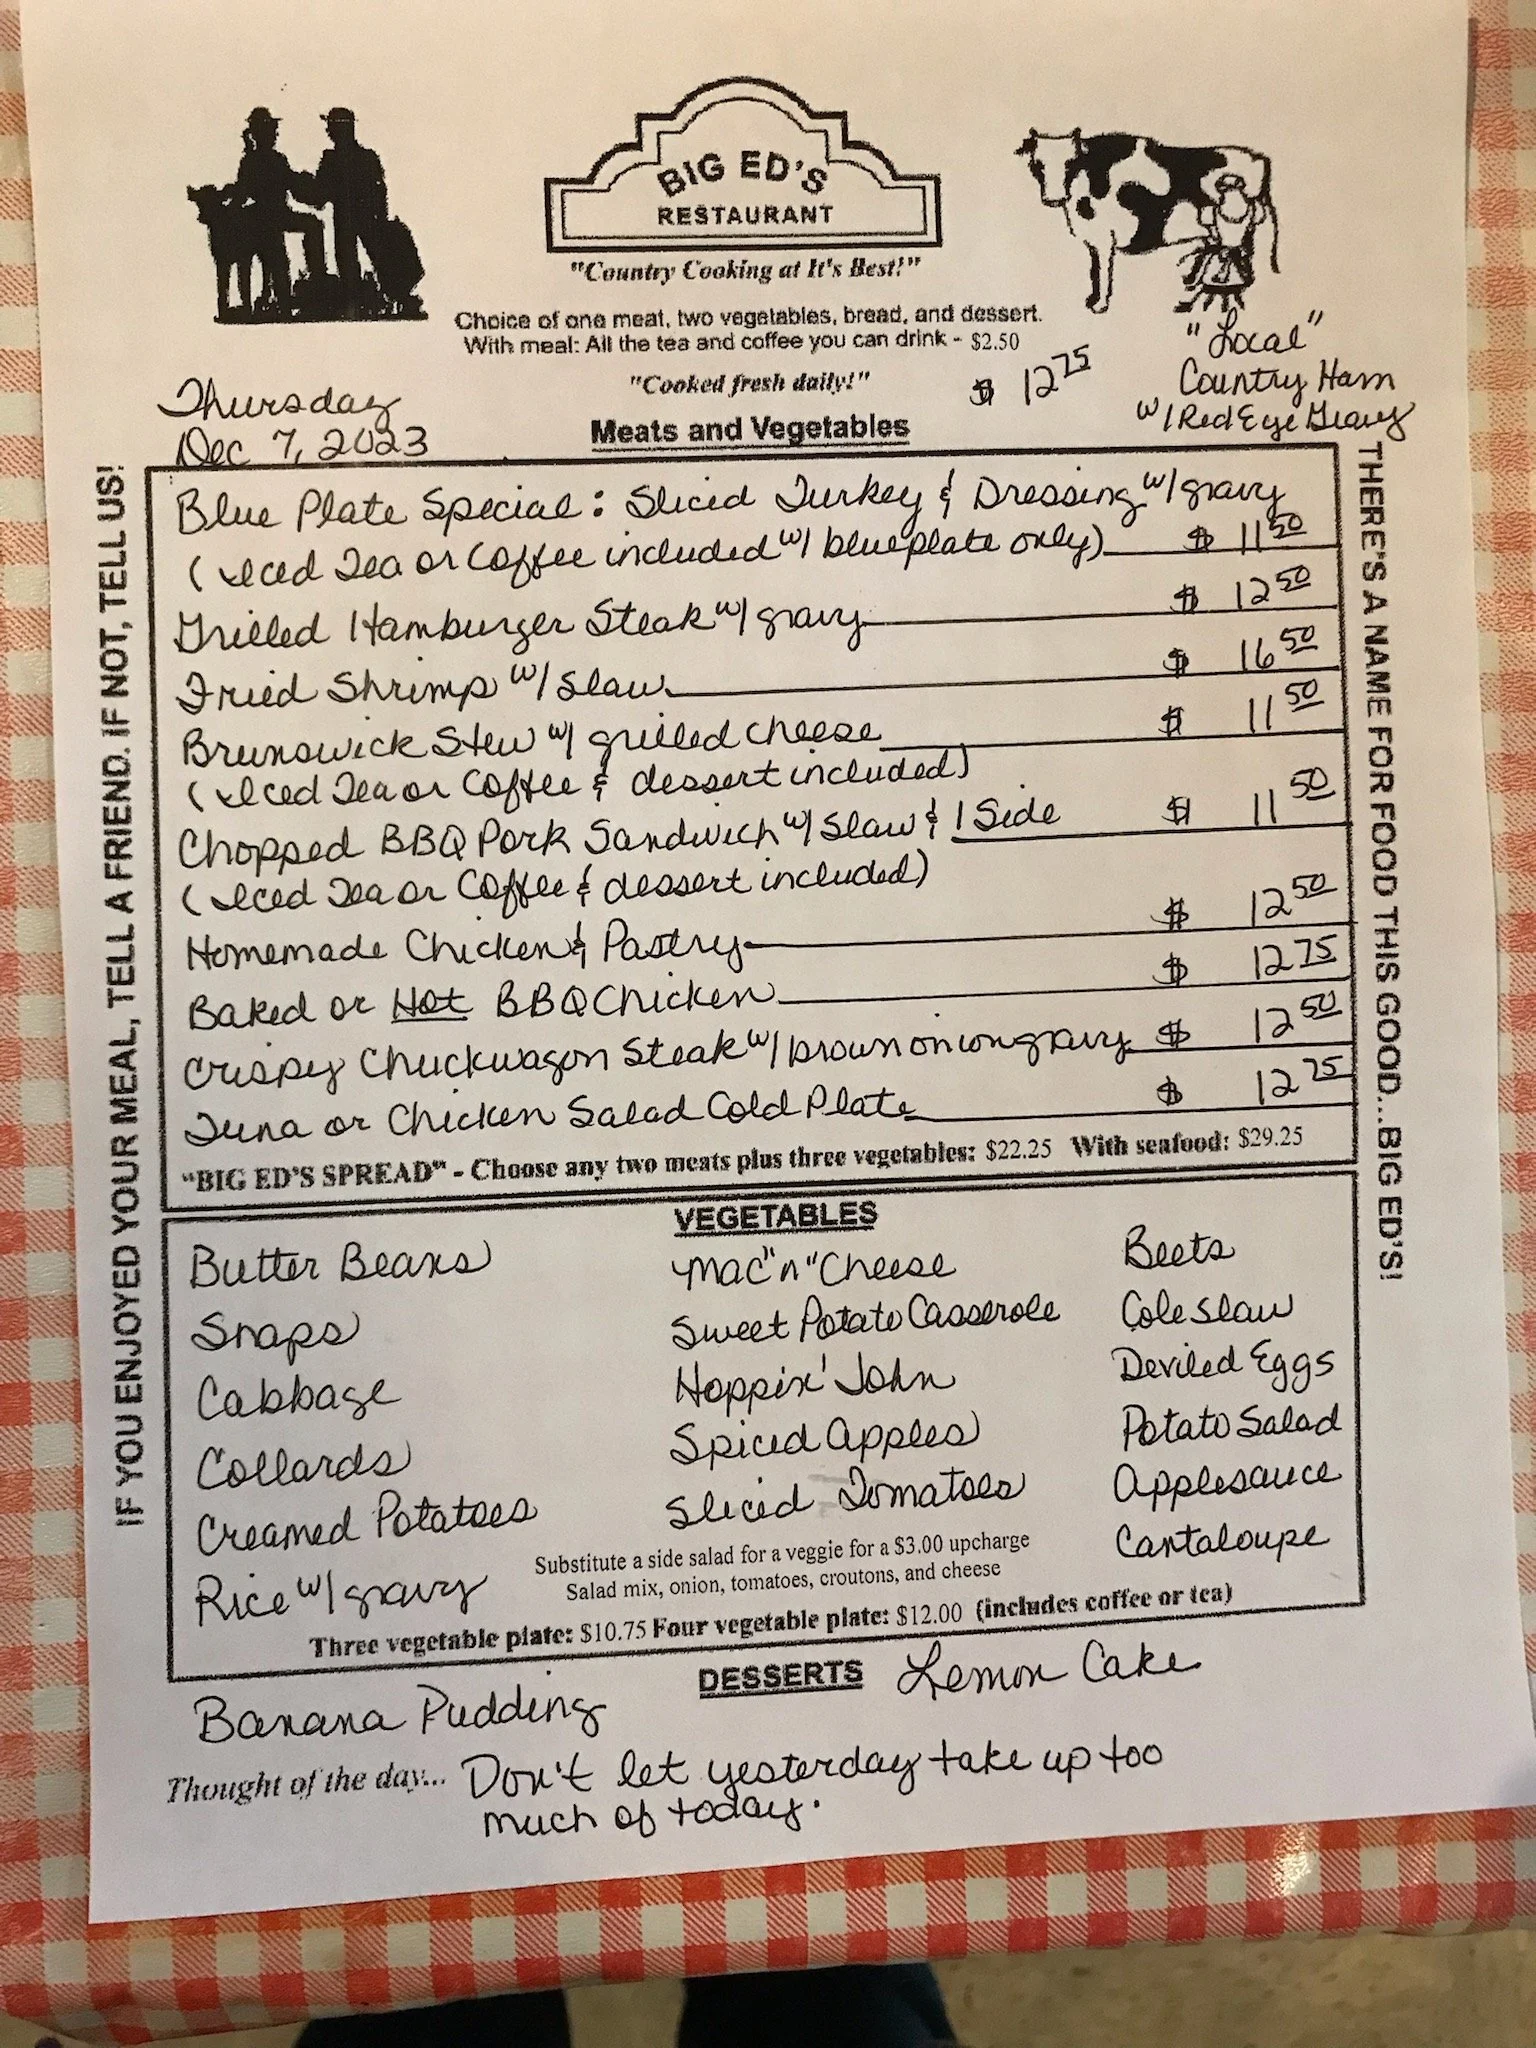 BIG ED'S
RESTAURANT
"Country Cooking at It's Best!"
Choice of one meat, two vegetables, bread, and dessert.
With meal: All the tea and coffee you can drink - $2.50
"Cooked fresh daily!"
$ 12 75
"Local"
Country Ham
w/ Red Eye Gravy
Thursday
Dec 7, 2023
Meats and Vegetables
IF YOU ENJOYED YOUR MEAL, TELL A FRIEND. IF NOT, TELL US!
THERE'S A NAME FOR FOOD THIS GOOD...BIG ED'S!
Blue Plate Special: Sliced Turkey & Dressing w/ gravy
(Iced Tea or Coffee included w/ blueplate only) $ 11 50
Grilled Hamburger Steak w/ gravy $ 12 50
Fried Shrimp w/ slaw $ 16 50
Brunswick Stew w/ grilled cheese $ 11 50
(Iced Tea or Coffee & dessert included)
Chopped BBQ Pork Sandwich w/ slaw & 1 Side $ 11 50
(Iced Tea or Coffee & dessert included)
Homemade Chicken & Pastry $ 12 50
Baked or Hot BBQ Chicken $ 12 75
Crispy Chuckwagon Steak w/ brown onion gravy $ 12 50
Tuna or Chicken Salad Cold Plate $ 12 75
"BIG ED'S SPREAD" - Choose any two meats plus three vegetables: $22.25 With seafood: $29.25
VEGETABLES
Butter Beans
Snaps
Cabbage
Collards
Creamed Potatoes
Rice w/ gravy
Mac "n" Cheese
Sweet Potato Casserole
Hoppin' John
Spiced Apples
Sliced Tomatoes
Beets
Cole Slaw
Deviled Eggs
Potato Salad
Applesauce
Cantaloupe
Substitute a side salad for a veggie for a $3.00 upcharge
Salad mix, onion, tomatoes, croutons, and cheese
Three vegetable plate: $10.75 Four vegetable plate: $12.00 (includes coffee or tea)
DESSERTS
Banana Pudding
Lemon Cake
Thought of the day... Don't let yesterday take up too
much of today.